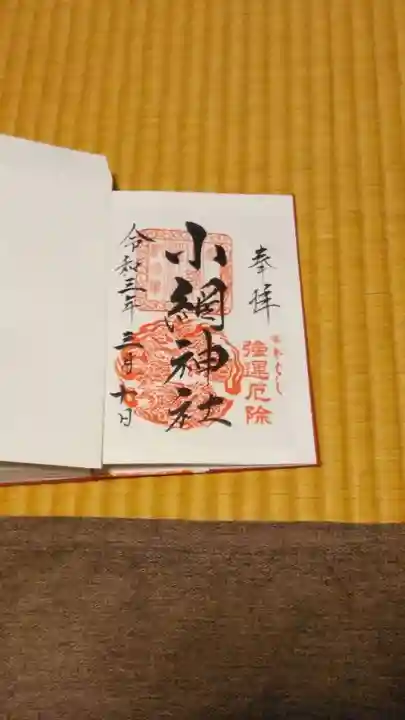 奉拝
強運厄除
小網神社
令和三年三月十日